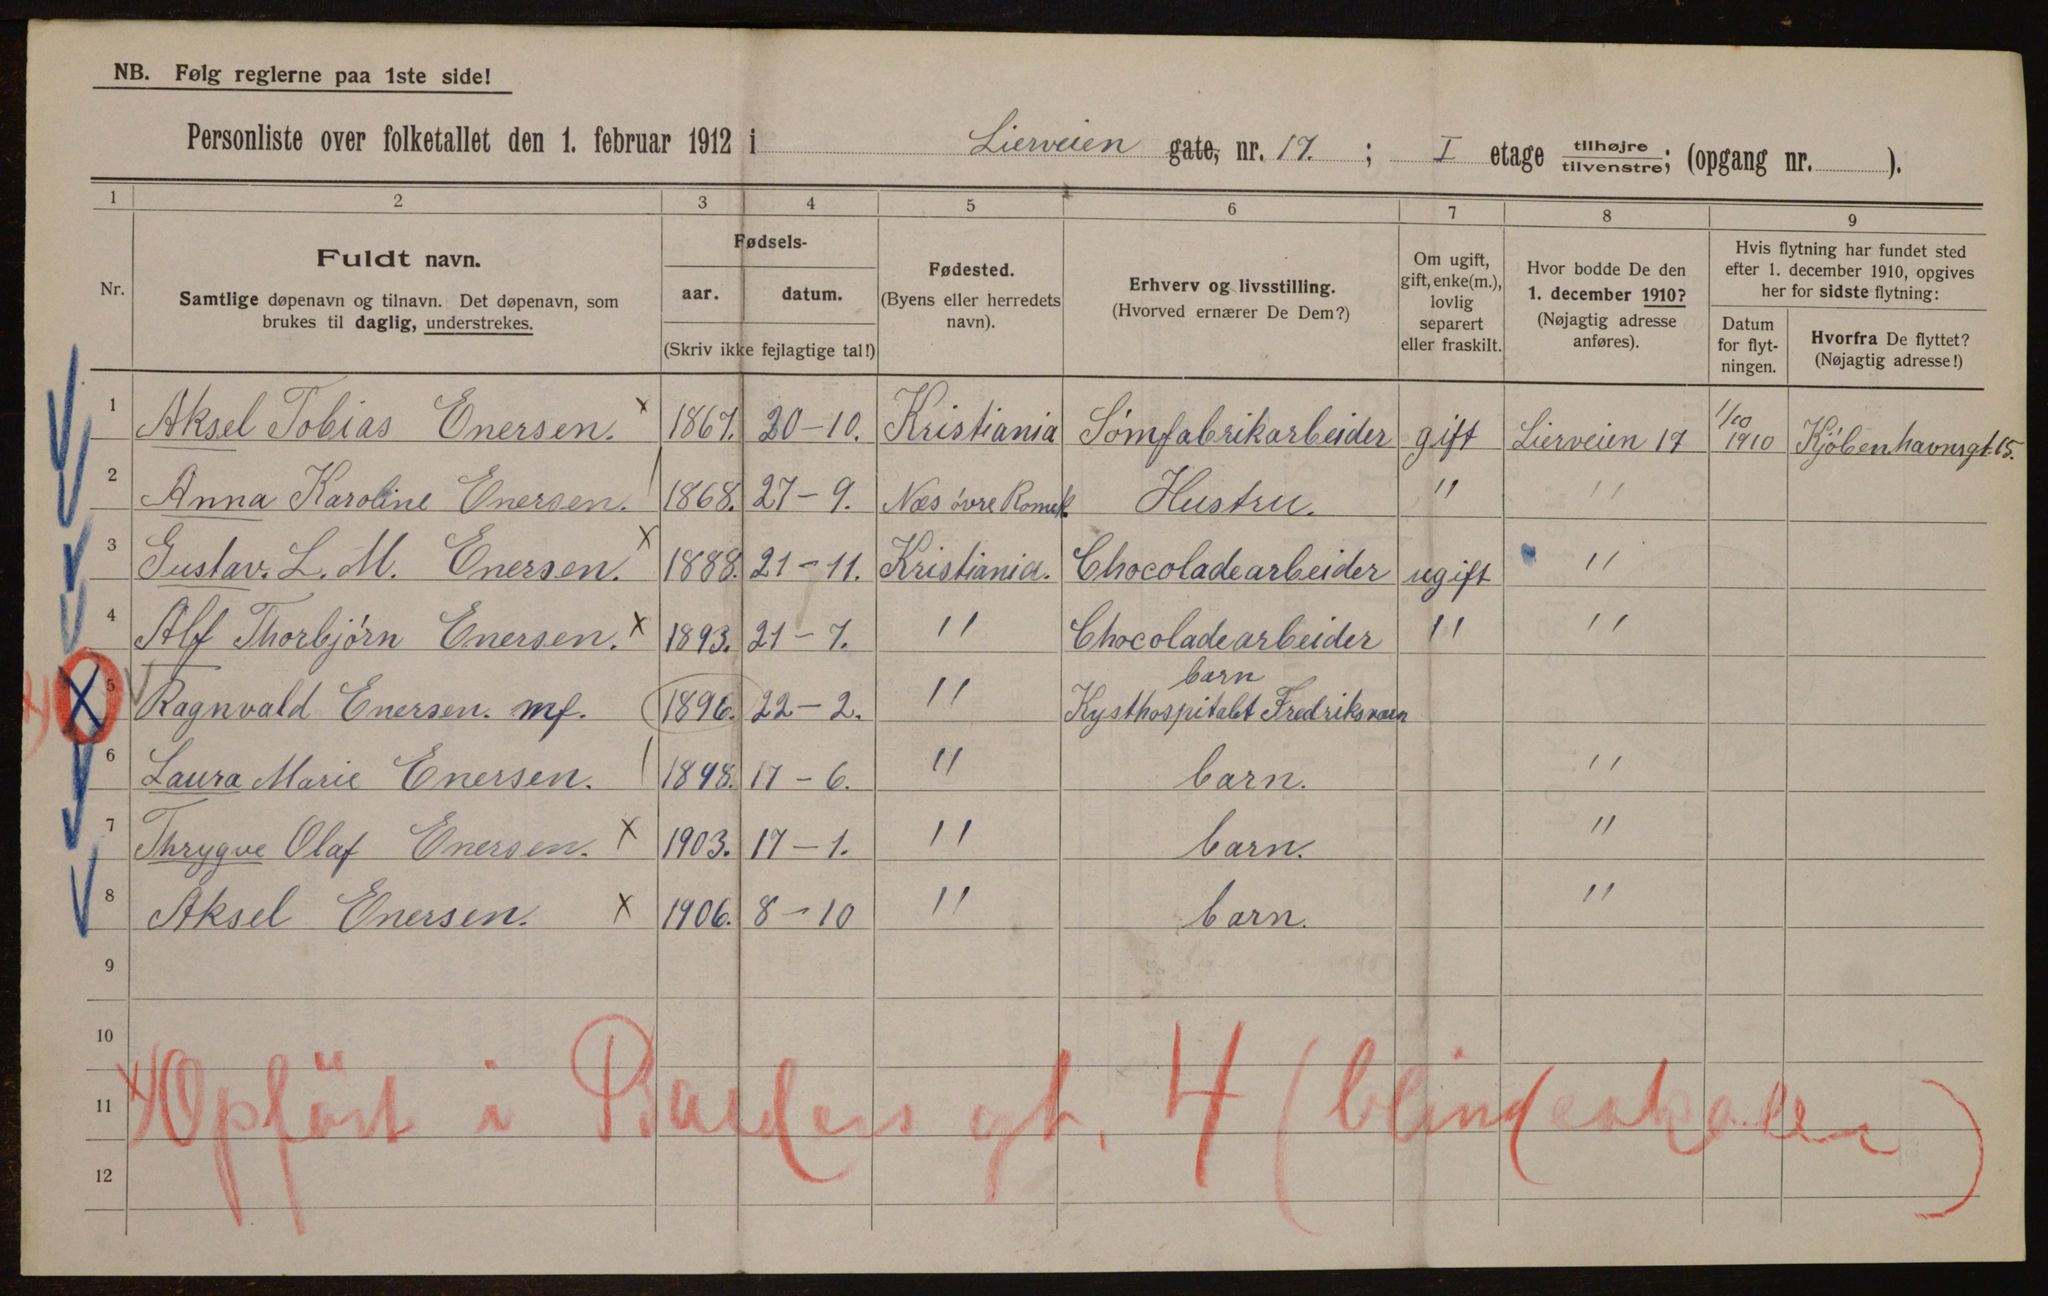 NB. Følg reglerne paa 1ste side!
Personliste over folketallet den 1. februar 1912 i Lierveien gate, nr. 17. ; I etage tilhøjre/tilvenstre; (opgang nr. ).
1 2 3 4 5 6 7 8 9
Nr.
Fuldt navn.
Samtlige døpenavn og tilnavn. Det døpenavn, som
brukes til daglig, understrekes.
Fødsels-
aar. datum.
(Skriv ikke fejlagtige tal!)
Fødested.
(Byens eller herredets
navn).
Erhverv og livsstilling.
(Hvorved ernærer De Dem?)
Om ugift,
gift, enke(m.),
lovlig
separert
eller fraskilt.
Hvor bodde De den
1. december 1910?
(Nøjagtig adresse
anføres).
Hvis flytning har fundet sted
efter 1. december 1910, opgives
her for sidste flytning:
Datum
for flyt-
ningen.
Hvorfra De flyttet?
(Nøjagtig adresse!)
1 Aksel Tobias Enersen. x 1867. 20-10. Kristiania Sømfabrikarbeider gift Lierveien 17 1/10 1910 Kjøbenhavnsgt. 15.
2 Anna Karoline Enersen. / 1868. 27-9. Næs øvre Romek. Hustru. " "
3 Gustav. L. M. Enersen. x 1888. 21-11. Kristiania. Chocoladearbeider ugift "
4 Alf Thorbjørn Enersen. x 1893. 21-7. " Chocoladearbeider " "
x) X 5 Ragnvald Enersen. mf. 1896. 22-2. " barn
Kysthospitalet Fredriksværn
6 Laura Marie Enersen. / 1898. 17-6. " barn. "
7 Thrygve Olaf Enersen. x 1903. 17-1. " barn. "
8 Aksel Enersen. x 1906. 8-10 " barn. "
9
10
11
12
x) Opført i Balders gt. 4 (blindeskolen)